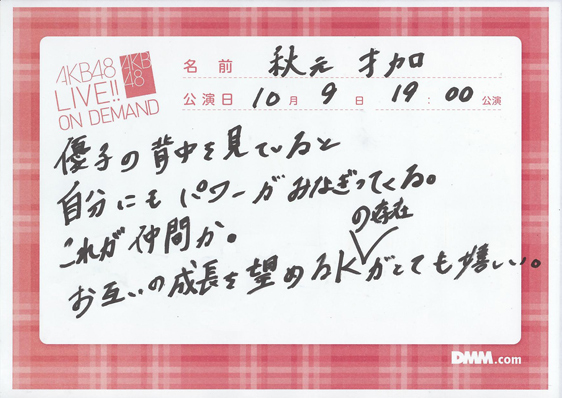 AKB48
LIVE!!
ON DEMAND
AKB
48
名前 秋元 才加
公演日 10月 9日 19:00公演
優子の背中を見ていると
自分にも パワーが みなぎってくる。
これが 仲間か。
の存在
お互いの成長を望めるKがとても嬉しい。
DMM.com